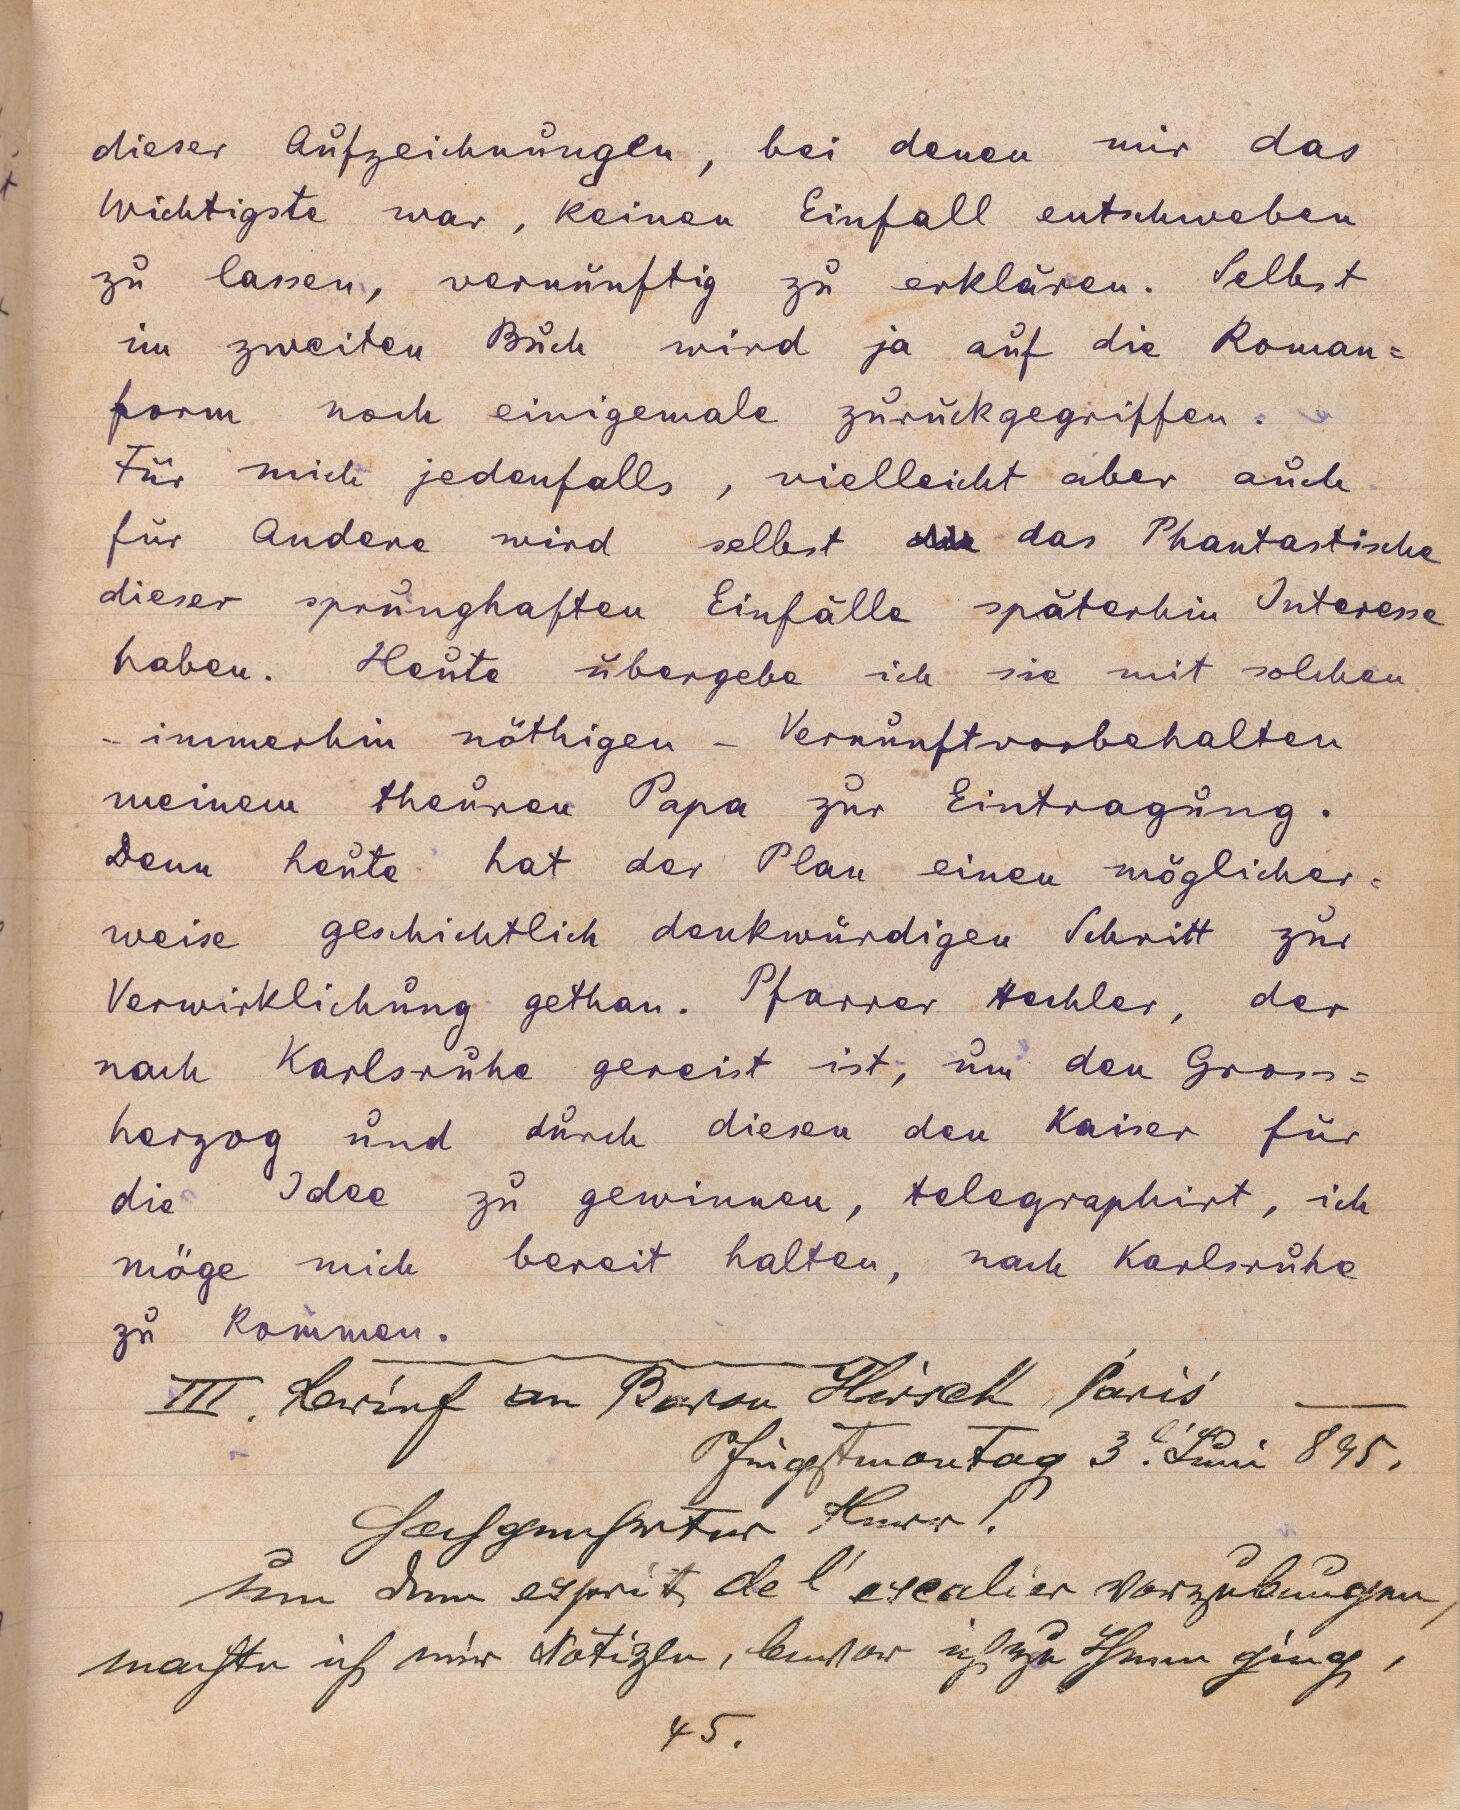 dieser Aufzeichnungen, bei denen mir das
Wichtigste war, keinen Einfall entschweben
zu lassen, vernünftig zu erklären. Selbst
im zweiten Buch wird ja auf die Roman=
form noch einigemale zurückgegriffen.
Für mich jedenfalls, vielleicht aber auch
für Andere wird selbst das Phantastische
dieser sprunghaften Einfälle späterhin Interesse
haben. Heute übergebe ich sie mit solchen
– immerhin nöthigen – Vernunftvorbehalten
meinem theuren Papa zur Eintragung.
Denn heute hat der Plan einen möglicher=
weise geschichtlich denkwürdigen Schritt zur
Verwirklichung gethan. Pfarrer Hechler, der
nach Karlsruhe gereist ist, um den Gross=
herzog und durch diesen den Kaiser für
die Idee zu gewinnen, telegraphirt, ich
möge mich bereit halten, nach Karlsruhe
zu kommen.
III. Brief an Baron Hirsch Paris
Pfingstmontag 3. Juni 895.
Hochgeehrter Herr!
Um dem esprit de l'escalier vorzubeugen,
machte ich mir Notizen, bevor ich zu Ihnen ging,
45.